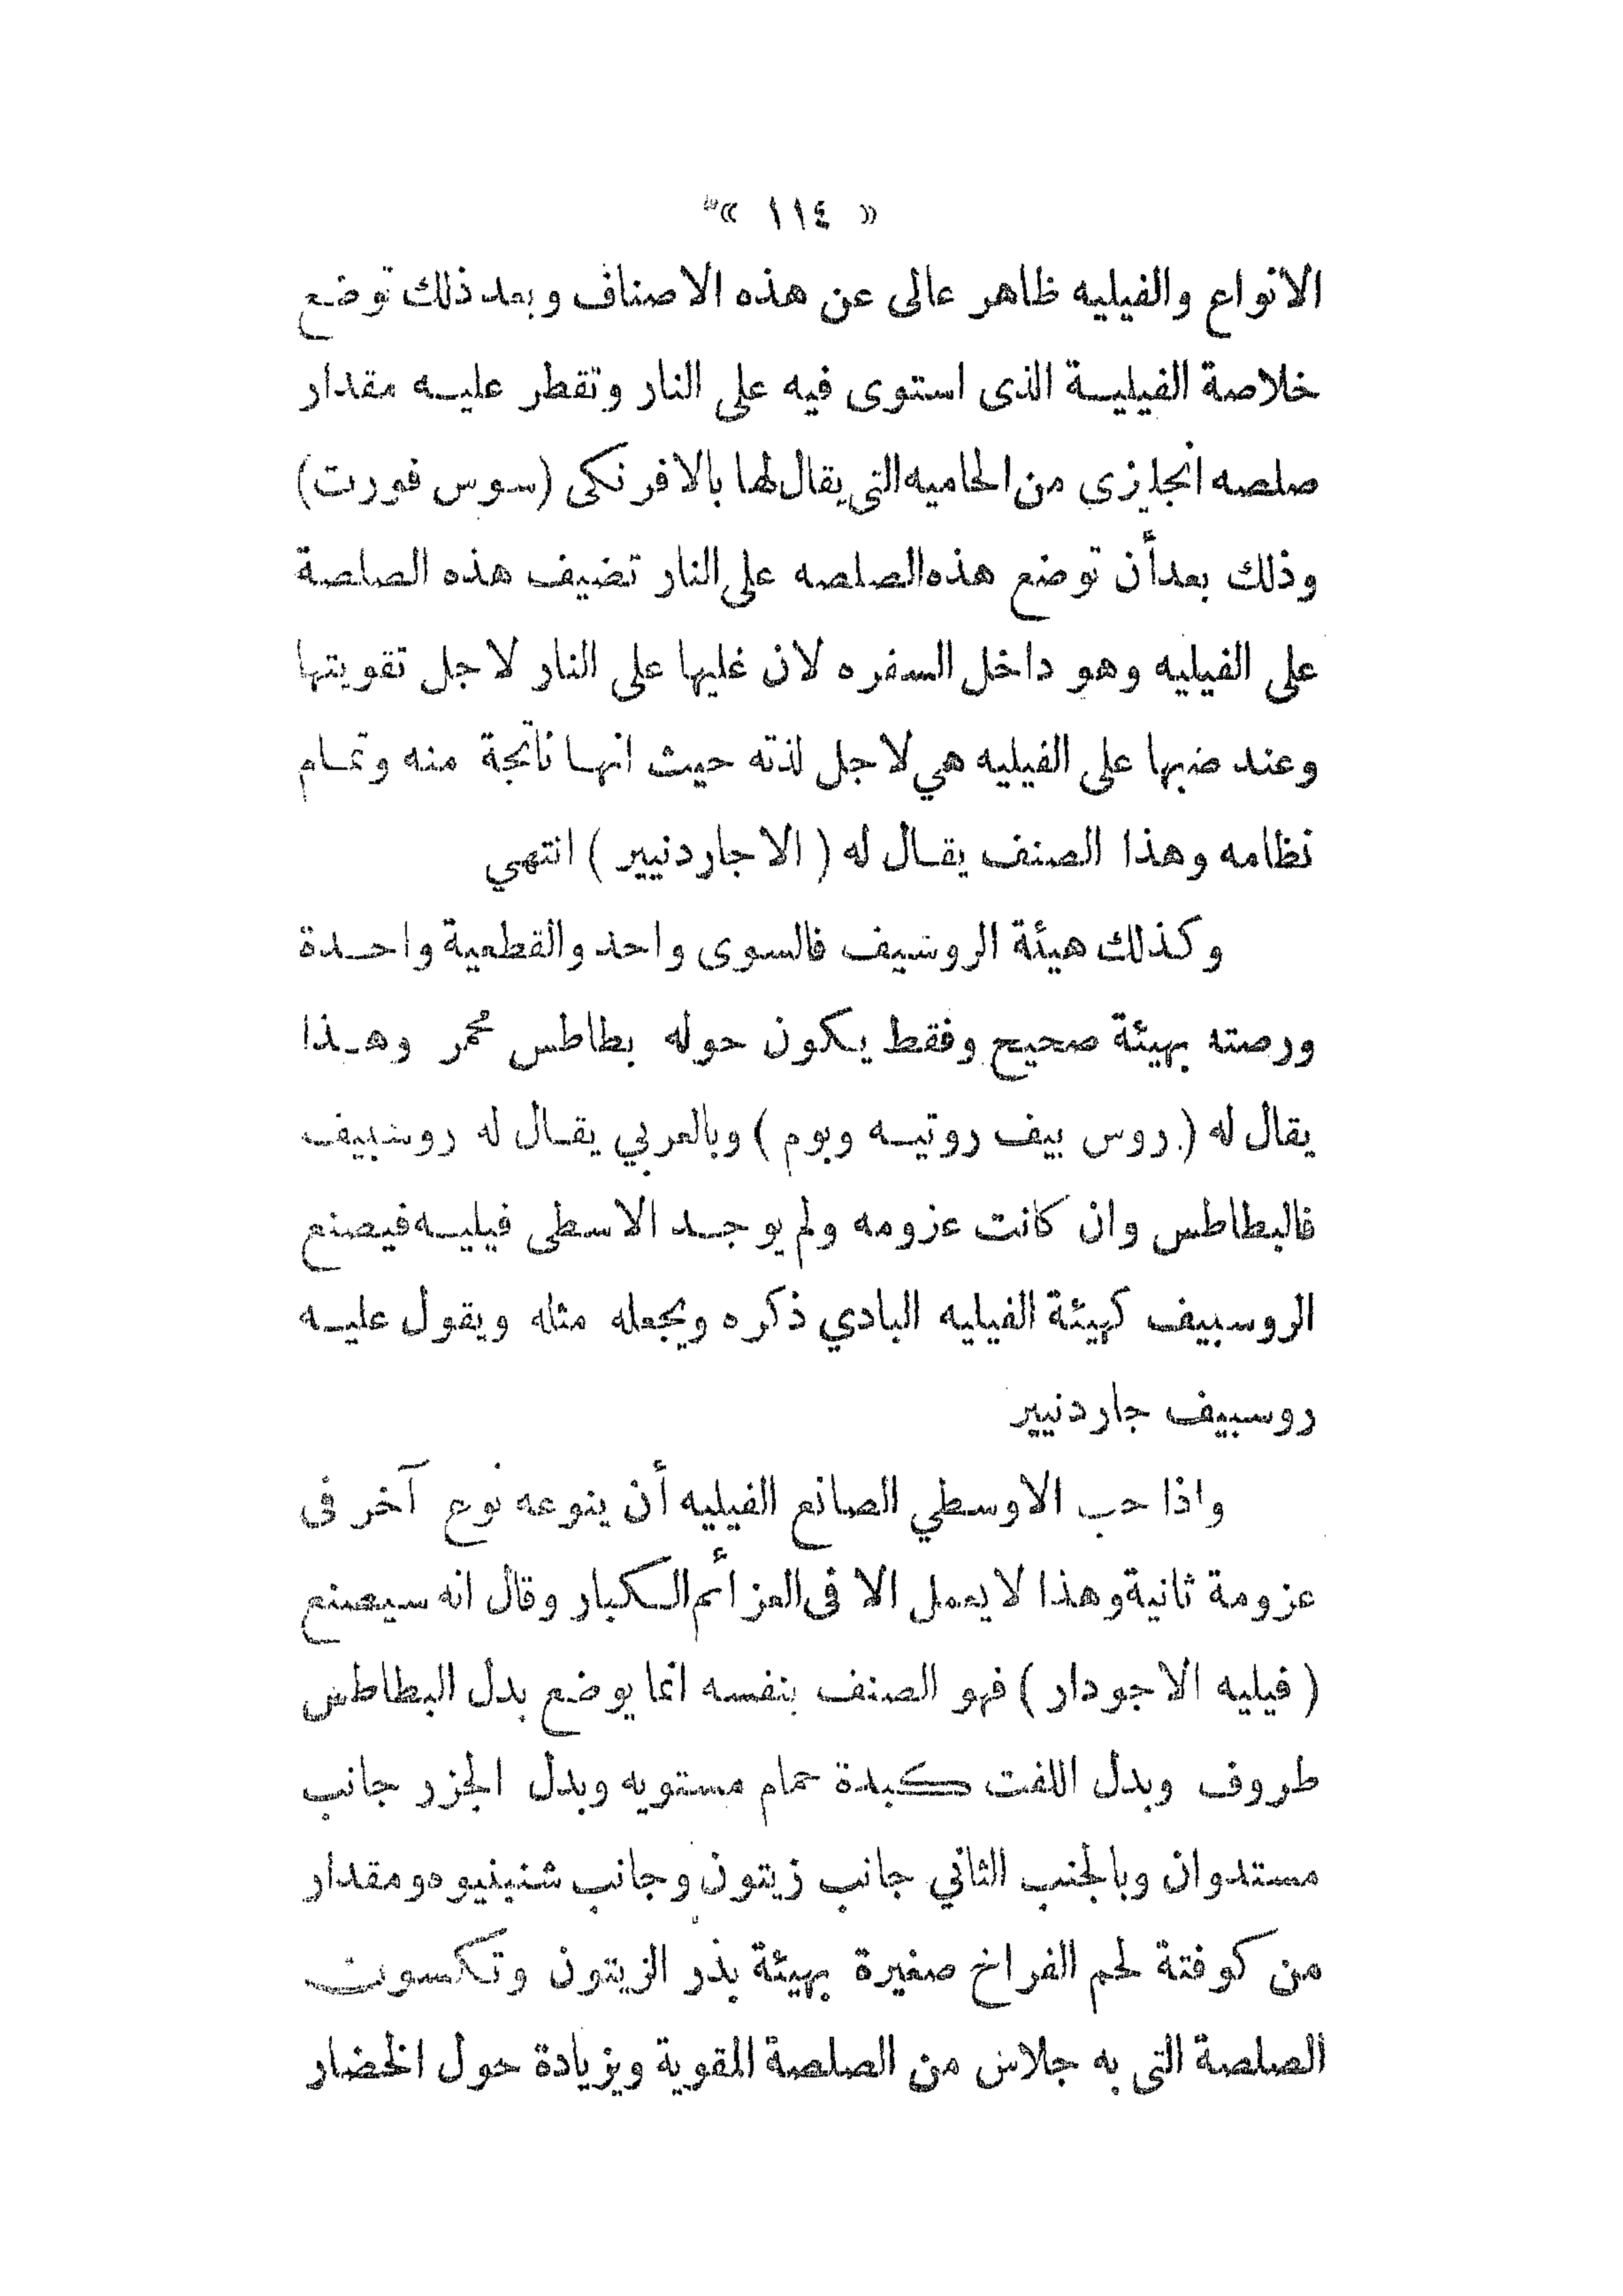 « ١١٤ »
الانواع والفيليه ظاهر عالى عن هذه الاصناف وبعد ذلك توضع
خلاصة الفيليـة الذى استوى فيه على النار وتقطر عليـه مقدار
صلصه انجليزي من الحاميه التى يقال لها بالافرنكى (سوس فورت)
وذلك بعد أن توضع هذه الصلصه على النار تضيف هذه الصلصة
على الفيليه وهو داخل السفره لان غليها على النار لاجل تقويتها
وعند ضبها على الفيليه هي لاجل لذته حيث انهـا ناتجة منه وتمـام
نظامه وهذا الصنف يقـال له ( الاجاردنيير ) انتهي
وكذلك هيئة الروشيف فالسوى واحد والقطعية واحـدة
ورصته بهيئة صحيح وفقط يكون حوله بطاطس محمر وهـذا
يقال له ( روس بيف روتيـه وبوم ) وبالعربي يقـال له روشبيف
فالبطاطس وان كانت عزومه ولم يوجـد الاسطى فيليـه فيصنع
الروسبيف كهيئة الفيليه البادي ذكره ويجعله مثله ويقول عليـه
روسبيف جاردنيير
واذا حب الاوسطي الصانع الفيليه أن ينوعه نوع آخر فى
عزومة ثانية وهذا لايعمل الا فى العزائم الكبار وقال انه سيصنع
( فيليه الاجودار ) فهو الصنف بنفسه انما يوضع بدل البطاطس
طروف وبدل اللفت كبدة حمام مستويه وبدل الجزر جانب
مستدوان وبالجنب الثاني جانب زيتون وجانب شنبنيو ومقدار
من كوفتة لحم الفراخ صغيرة بهيئة بذر الزيتون وتكسوت
الصلصة التى به جلاس من الصلصة المقوية ويزيادة حول الخضار